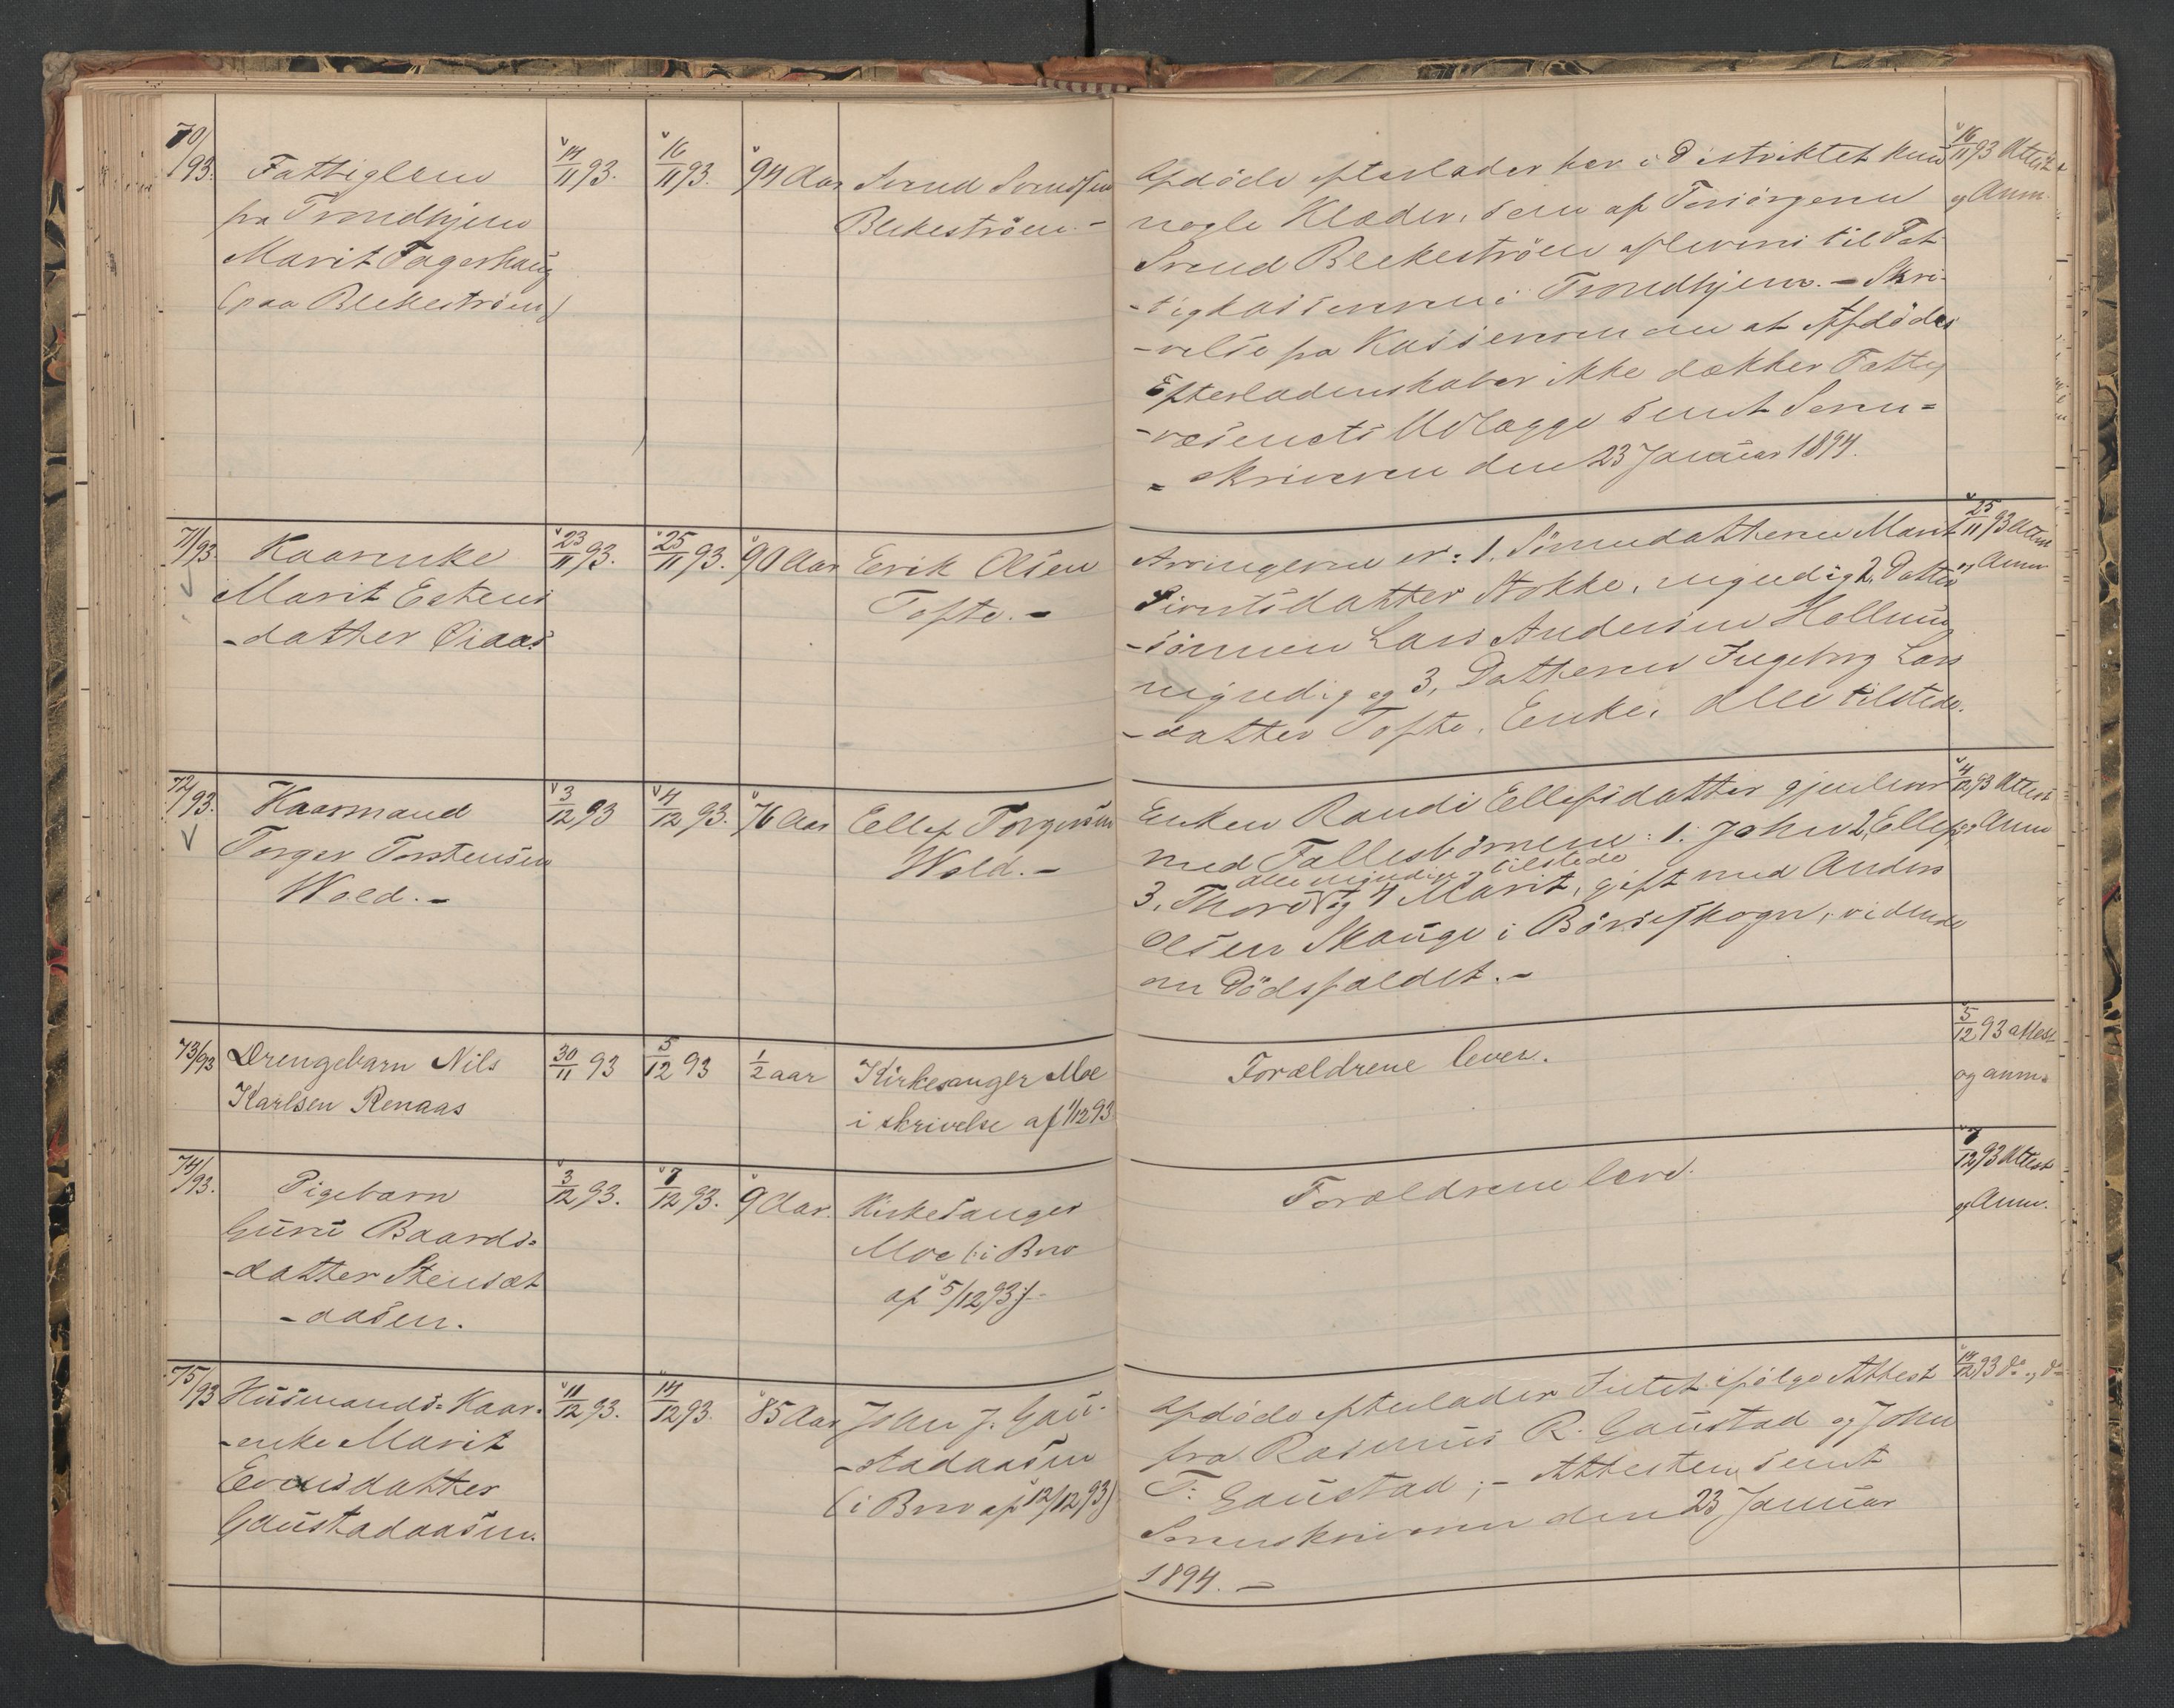 70/93.
Fattiglem
fra Trondhjem
Marit Fagerhaug
(paa Blekeströen)
14/11 93.
16/11 93.
94 Aar
Svend Svendsen
Blekeströen. -
Afdöde efterlader her i Distriktet kun
nogle Klæder, som af Forsörgeren
Svend Blekeströen afleveres til Fat-
-tigkassereren i Trondhjem. - Skri-
-velse fra Kassereren om at Afdödes
Efterladenskaber ikke dækker Fattig
-væsenets Udlægge sendt Soren=
= skriveren den 23 Januar 1894.
16/11 93 Attest
og Anm.
71/93.
Kaarenke
Marit Estens
-datter Öiaas
23/11 93.
25/11 93.
90 Aar
Erik Olsen
Tofte. -
Arvingerne er: 1. Sönnedatteren Marit
Sivertsdatter Stokke, myndig 2, Datter
-sönnen Lars Andersen Hollung
myndig og 3, Datteren Ingeborg Lars
-datter Tofte, Enke, alle tilstede.
25/11 93 Attest
og Anm
72/93.
Kaarmand
Torger Torstensen
Wold. -
3/12 93
4/12 93.
76 Aar
Ellef Torgersen
Wold. -
Enken Randi Ellefsdatter gjenlever
med Fællesbörnene: 1. John 2, Ellef,
alle myndige, tilstede
3, Thore og 4 Marit, gift med Anders
Olsen Skauge i Börseskogn, vidende
om Dödsfaldet. -
4/12 93 Attest
og Anm
73/93
Drengebarn Nils
Karlsen Renaas
30/11 93
5/12 93
1/2 aar
Kirkesanger Moe
i skrivelse af 1/12 93
Forældrene lever.
5/12 93 attest
og anm.
74/93.
Pigebarn
Guru Baards=
-datter Stensæt
-aasen.
3/12 93.
7/12 93.
9 Aar.
Kirkesanger
Moe (: i Brev
af 5/12 93 :) -
Forældrene leve.
7/12 93 Attest
og Anm.
75/93
Husmands= Kaar-
-enke Marit
Evensdatter
Gaustadaasen.
11/12 93.
14/12 93.
85 Aar
John J. Gau-
-stadaasen
(i Brev af 12/12 93)
Afdöde efterlader Intet ifölge Attest
fra Rasmus R. Gaustad og John
T. Gaustad; - Attesten sendt
Sorenskriveren den 23 Januar
1894. -
14/12 93 do og do